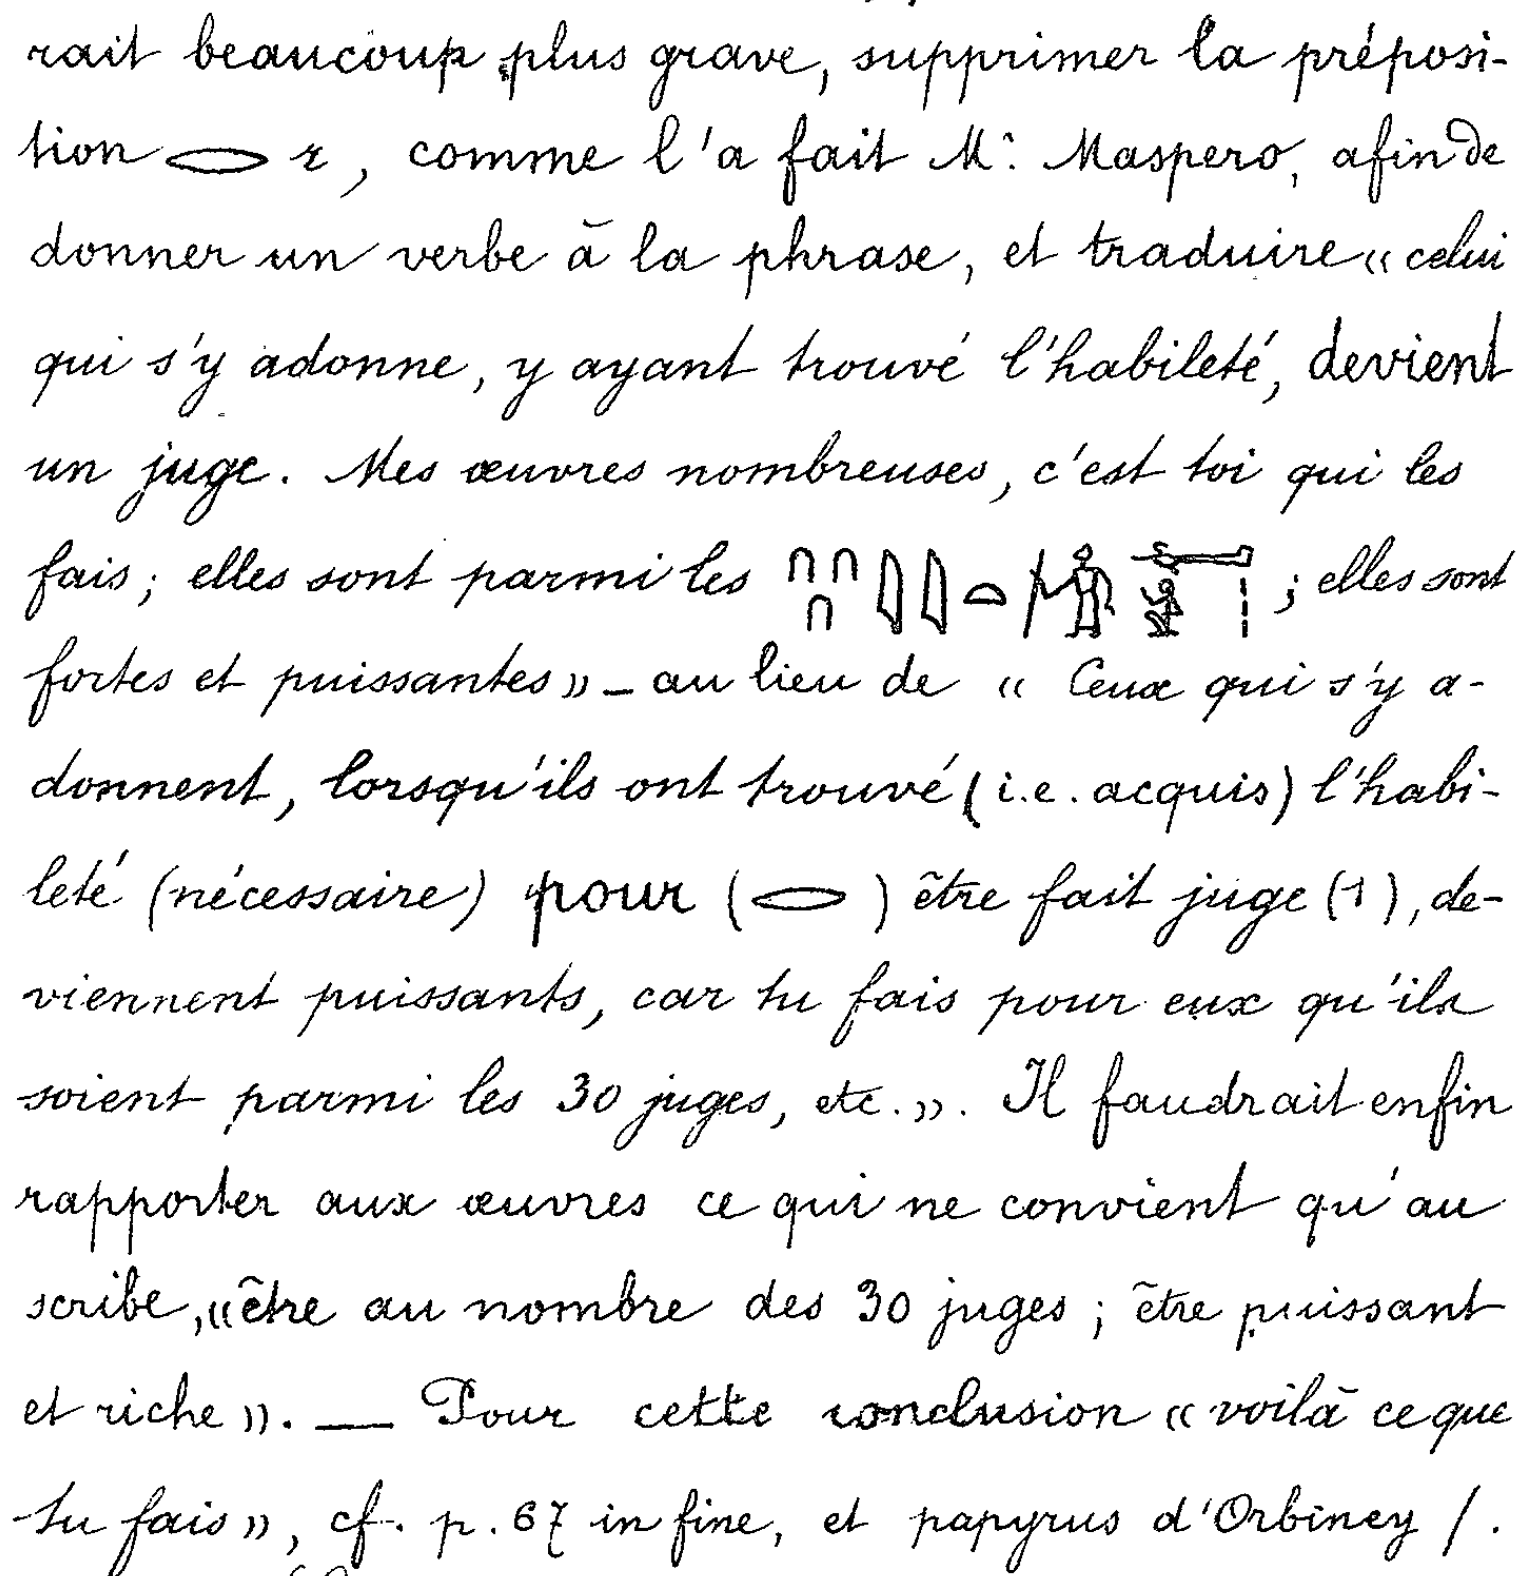 rait beaucoup plus grave, supprimer la préposi-
tion 𓂋 r, comme l'a fait Mr. Maspero, afin de
donner un verbe à la phrase, et traduire « celui
qui s'y adonne, y ayant trouvé l'habileté, devient
un juge. Mes œuvres nombreuses, c'est toi qui les
fais; elles sont parmi les ; elles sont
fortes et puissantes » — au lieu de « Ceux qui s'y a-
donnent, lorsqu'ils ont trouvé (i.e. acquis) l'habi-
leté (nécessaire) pour (𓂋) être fait juge (1), de-
viennent puissants, car tu fais pour eux qu'ils
soient parmi les 30 juges, etc. ». Il faudrait enfin
rapporter aux œuvres ce qui ne convient qu'au
scribe, « être au nombre des 30 juges ; être puissant
et riche ». — Pour cette conclusion « voilà ce que
tu fais », cf. p. 67 in fine, et papyrus d'Orbiney /.